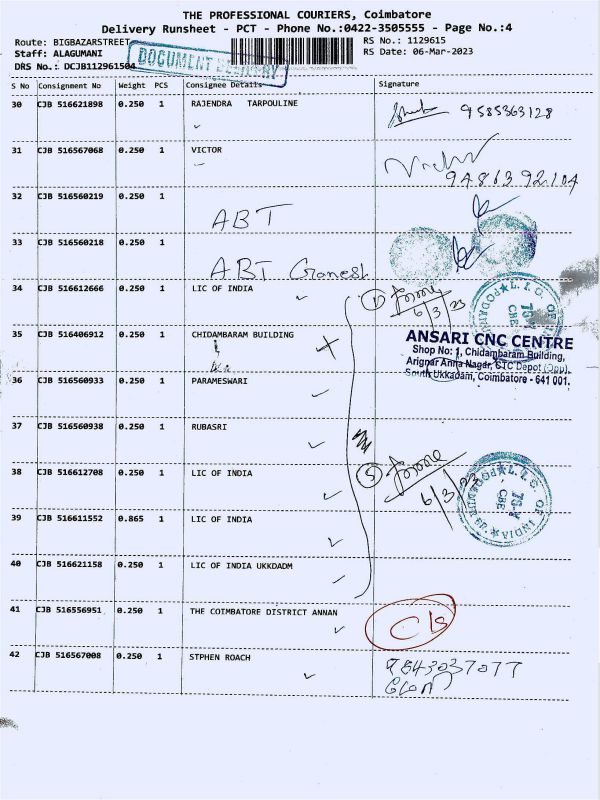 THE PROFESSIONAL COURIERS, Coimbatore
Delivery Runsheet - PCT - Phone No.:0422-3505555 - Page No.:4
Route: BIGBAZARSTREET
RS No.: 1129615
Staff: ALAGUMANI
RS Date: 06-Mar-2023
DRS No.: DCJB112961504
DOCUMENT DELIVERY
S No Consignment No Weight PCS Consignee Details Signature
30 CJB 516621898 0.250 1 RAJENDRA TARPOULINE
9585363128
31 CJB 516567068 0.250 1 VICTOR
Victor
9486392104
32 CJB 516560219 0.250 1
ABT
33 CJB 516560218 0.250 1
ABT Ganesh
34 CJB 516612666 0.250 1 LIC OF INDIA
① 6/3/23
L.I.C. OF INDIA
CBE
35 CJB 516406912 0.250 1 CHIDAMBARAM BUILDING
ANSARI CNC CENTRE
Shop No: 1, Chidambaram Building,
Arignar Anna Nagar, CTC Depot (Opp),
South Ukkadam, Coimbatore - 641 001.
36 CJB 516560933 0.250 1 PARAMESWARI
37 CJB 516560938 0.250 1 RUBASRI
38 CJB 516612708 0.250 1 LIC OF INDIA
⑤ 6/3/23
L.I.C. OF INDIA
CBE
39 CJB 516611552 0.865 1 LIC OF INDIA
40 CJB 516621158 0.250 1 LIC OF INDIA UKKDADM
41 CJB 516556951 0.250 1 THE COIMBATORE DISTRICT ANNAN
42 CJB 516567008 0.250 1 STPHEN ROACH
9843037077